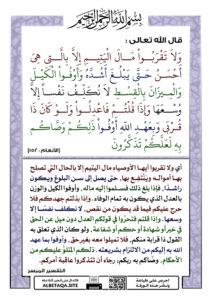 بِسْمِ اللَّهِ الرَّحْمَنِ الرَّحِيمِ
قال الله تعالى :
وَلَا تَقْرَبُوا۟ مَالَ ٱلْيَتِيمِ إِلَّا بِٱلَّتِى هِىَ
أَحْسَنُ حَتَّىٰ يَبْلُغَ أَشُدَّهُۥ وَأَوْفُوا۟ ٱلْكَيْلَ
وَٱلْمِيزَانَ بِٱلْقِسْطِ لَا نُكَلِّفُ نَفْسًا إِلَّا
وُسْعَهَا وَإِذَا قُلْتُمْ فَٱعْدِلُوا۟ وَلَوْ كَانَ ذَا
قُرْبَىٰ وَبِعَهْدِ ٱللَّهِ أَوْفُوا۟ ذَٰلِكُمْ وَصَّىٰكُم بِهِۦ
لَعَلَّكُمْ تَذَكَّرُونَ
[الأنعام : ١٥٢]
أي ولا تقربوا أيها الأوصياء مال اليتيم إلا بالحال التي تصلح
بها أمواله وينتفع بها، حتى يصل إلى سن البلوغ ويكون
راشدا، فإذا بلغ ذلك فسلموا إليه ماله، وأوفوا الكيل والوزن
بالعدل الذي يكون به تمام الوفاء. وإذا بذلتم جهدكم فلا
حرج عليكم فيما قد يكون من نقص، لا نكلف نفسا إلا
وسعها. وإذا قلتم فتحروا في قولكم العدل دون ميل عن الحق
في خبر أو شهادة أو حكم أو شفاعة، ولو كان الذي تعلق به
القول ذا قرابة منكم، فلا تميلوا معه بغير حق، وأوفوا بما عهد
الله به إليكم من الالتزام بشريعته. ذلكم المتلو عليكم من
الأحكام، وصاكم به ربكم؛ رجاء أن تتذكروا عاقبة أمركم.
التفسير الميسر
ALBETAQA.SITE